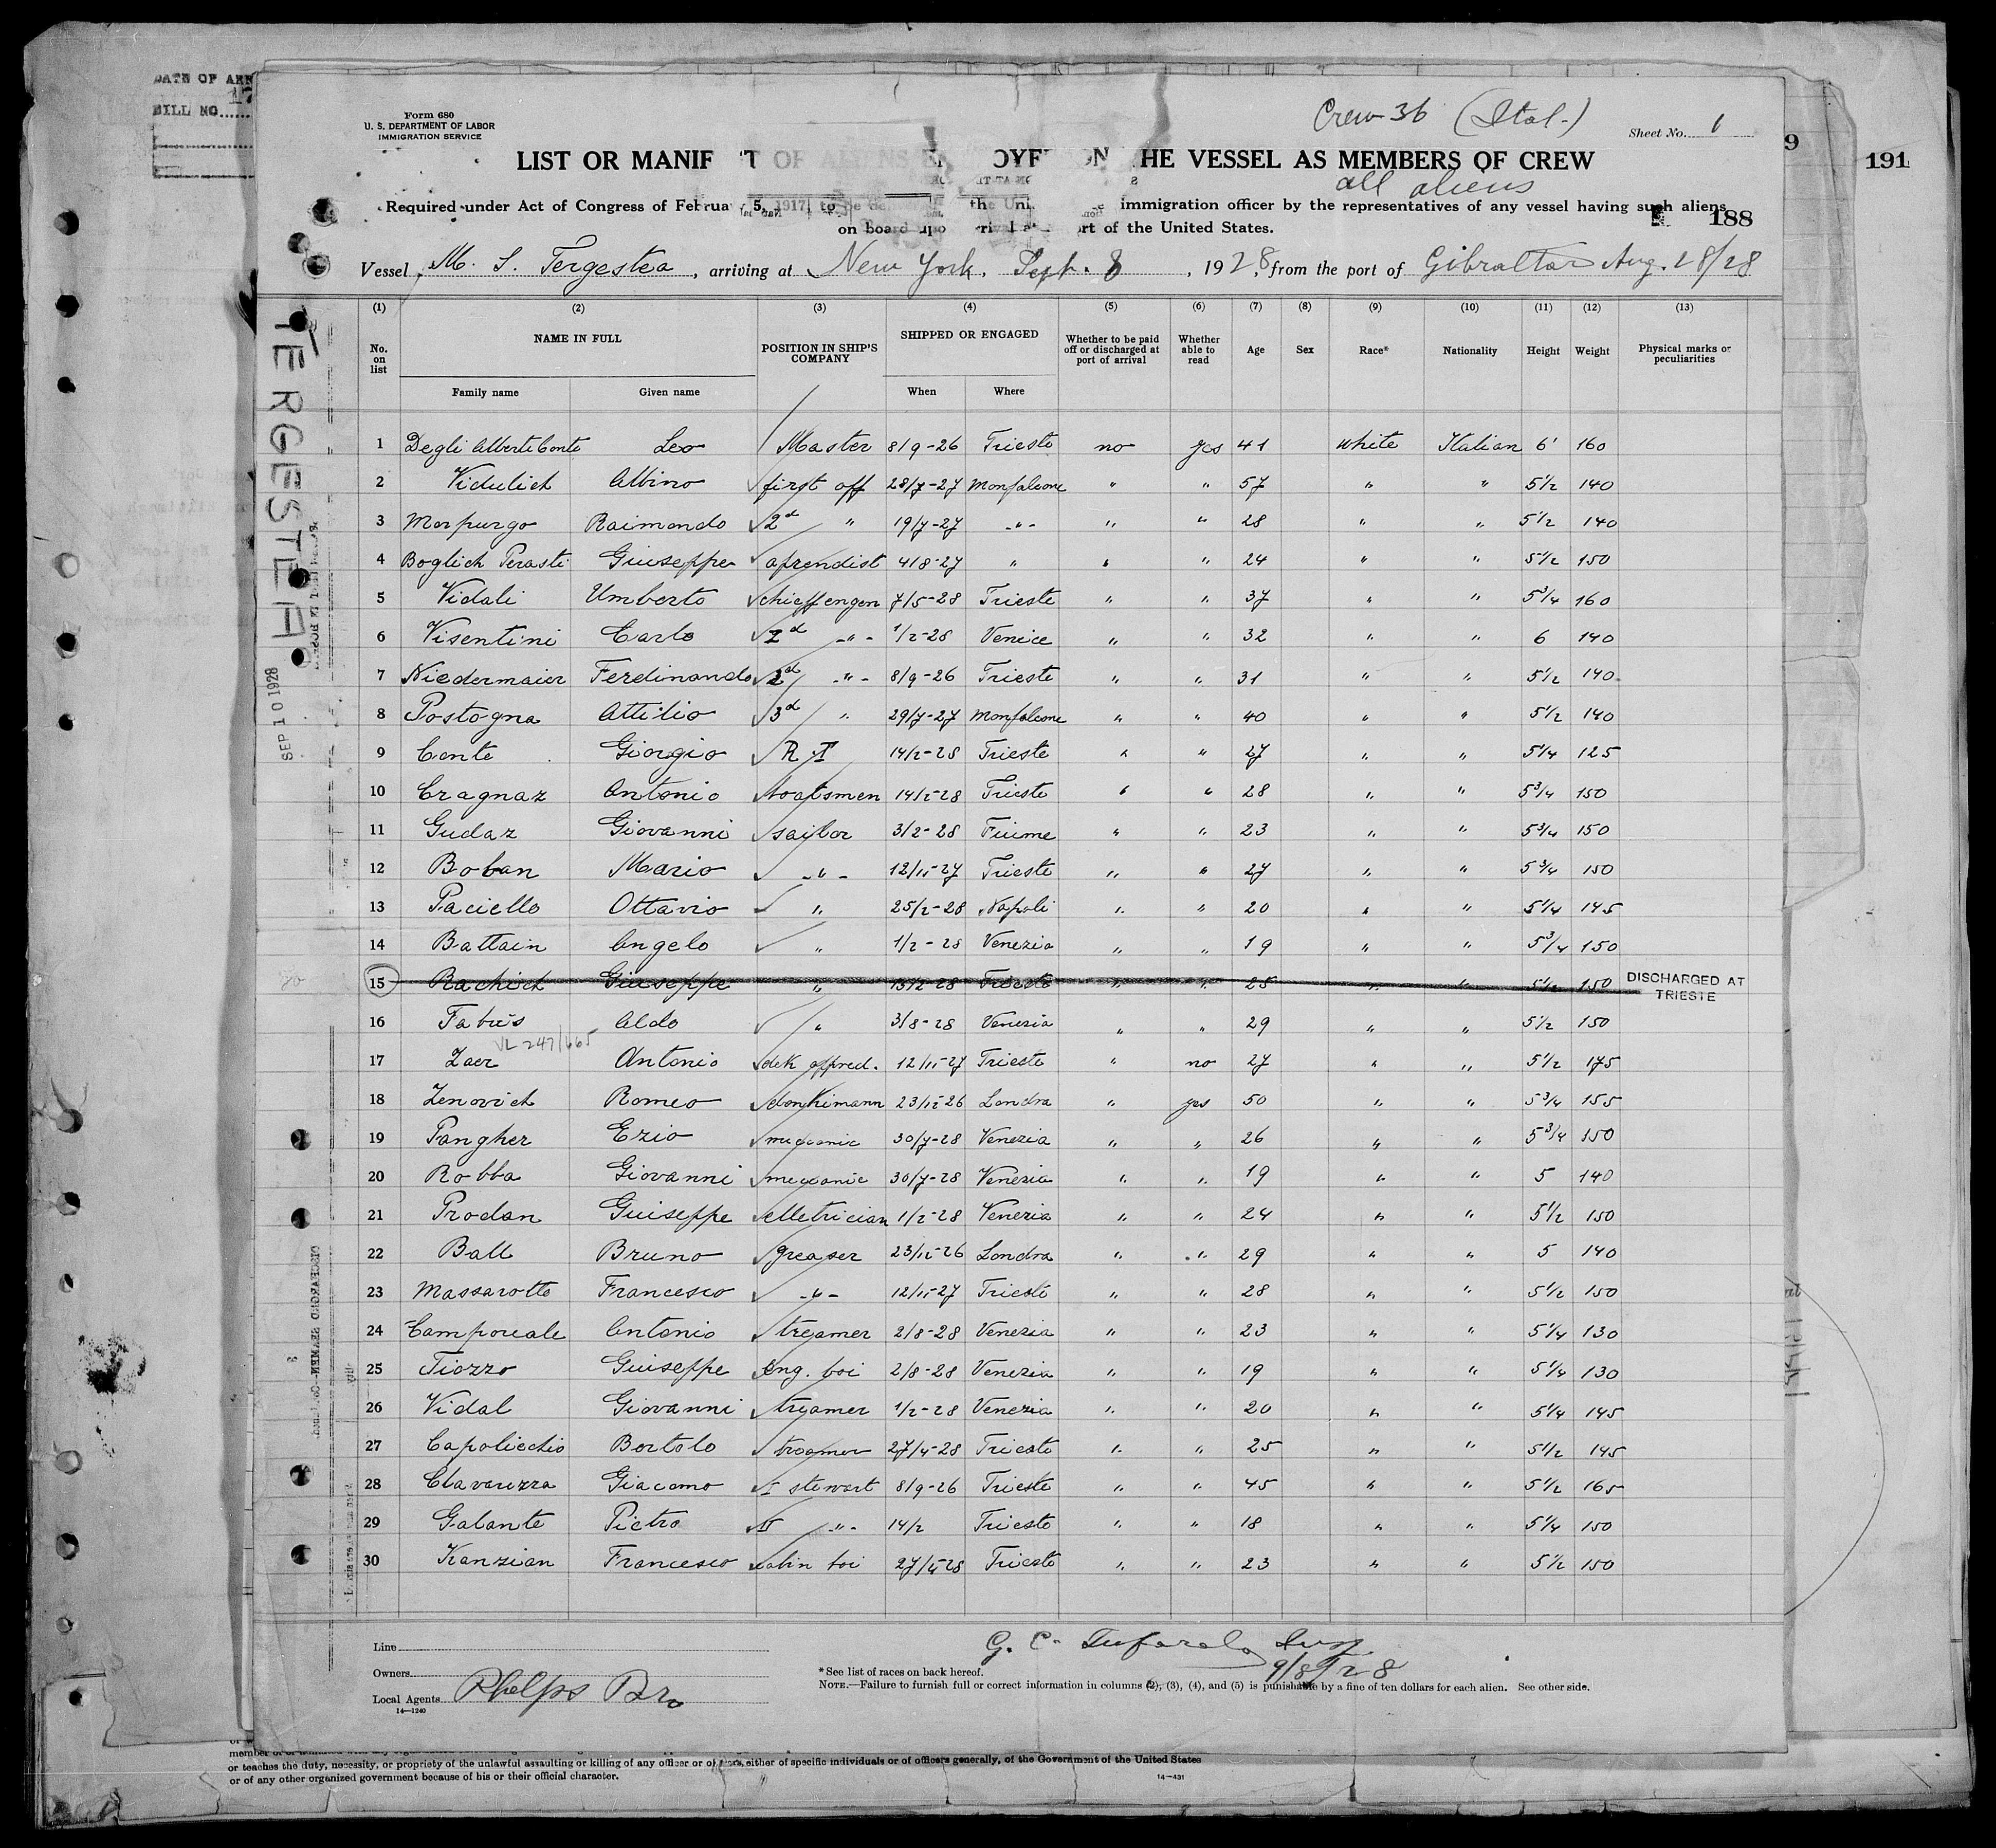 DATE OF ARR
BILL NO. 17
Form 680
U. S. DEPARTMENT OF LABOR
IMMIGRATION SERVICE
Crew 36 (Ital.)
Sheet No. 1
9
191
LIST OR MANIF T OF ALIENS EM OYE ON HE VESSEL AS MEMBERS OF CREW
all aliens
Required under Act of Congress of Februa 5, 1917, to be the Uni immigration officer by the representatives of any vessel having such aliens
188
on board upo rival a rt of the United States.
Vessel M. S. Tergestea, arriving at New York, Sept. 8, 1928, from the port of Gibraltar Aug. 28/28
(1) (2) (3) (4) (5) (6) (7) (8) (9) (10) (11) (12) (13)
No. on list NAME IN FULL POSITION IN SHIP'S COMPANY SHIPPED OR ENGAGED Whether to be paid off or discharged at port of arrival Whether able to read Age Sex Race* Nationality Height Weight Physical marks or peculiarities
Family name Given name When Where
1 Degli Alberti Conte Leo Master 8/9-26 Trieste no yes 41 white Italian 6' 160
2 Vidulich Albino first off 28/7-27 Monfalcone " " 57 " " 5 1/2 140
3 Morpurgo Raimondo 2d " 19/7-27 -"- " " 28 " " 5 1/2 140
4 Boglich Perasti Giuseppe aprendist 4/8-27 " " " 24 " " 5 1/2 150
5 Vidali Umberto chieff engen 7/5-28 Trieste " " 37 " " 5 3/4 160
6 Visentini Carlo 2d -"- 1/2-28 Venice " " 32 " " 6 140
7 Niedermaier Ferdinando 2d -"- 8/9-26 Trieste " " 31 " " 5 1/2 140
8 Postogna Attilio 3d " 29/7-27 Monfalcone " " 40 " " 5 1/2 140
9 Conte Giorgio R T 14/2-28 Trieste " " 27 " " 5 1/4 125
10 Cragnaz Antonio boatsmen 14/2-28 Trieste " " 28 " " 5 3/4 150
11 Gudaz Giovanni sailor 3/2-28 Fiume " " 23 " " 5 3/4 150
12 Boban Mario -"- 12/11-27 Trieste " " 27 " " 5 3/4 150
13 Paciello Ottavio " 25/2-28 Napoli " " 20 " " 5 1/4 145
14 Battain Angelo " 1/2-28 Venezia " " 19 " " 5 3/4 150
15 Rachich Giuseppe " 13/2-28 Trieste " " 25 " " 5 1/2 150 DISCHARGED AT TRIESTE
16 Fabris Aldo " 3/8-28 Venezia " " 29 " " 5 1/2 150
VL 247/665
17 Zaer Antonio dek appred. 12/11-27 Trieste " no 27 " " 5 1/2 175
18 Zenovich Romeo donkimann 23/12-26 Londra " yes 50 " " 5 3/4 155
19 Pangher Ezio meccanic 30/7-28 Venezia " " 26 " " 5 3/4 150
20 Robba Giovanni meccanic 30/7-28 Venezia " " 19 " " 5 140
21 Prodan Giuseppe elletrician 1/2-28 Venezia " " 24 " " 5 1/2 150
22 Ball Bruno greaser 23/12-26 Londra " " 29 " " 5 140
23 Massarotto Francesco -"- 12/11-27 Trieste " " 28 " " 5 1/2 150
24 Camporeale Antonio treamer 2/8-28 Venezia " " 23 " " 5 1/4 130
25 Tiozzo Giuseppe eng. boi 2/8-28 Venezia " " 19 " " 5 1/4 130
26 Vidal Giovanni treamer 1/2-28 Venezia " " 20 " " 5 1/4 145
27 Capolicchio Bortolo treamer 27/4-28 Trieste " " 25 " " 5 1/2 145
28 Clavaruzza Giacomo I stewart 8/9-26 Trieste " " 45 " " 5 1/2 165
29 Galante Pietro II -"- 14/2 Trieste " " 18 " " 5 1/4 150
30 Kanzian Francesco cabin boi 27/4-28 Trieste " " 23 " " 5 1/2 150
TERGESTEA
SEP 10 1928
Line
Owners
Local Agents Phelps Bro
14—1240
G. C. Tufarolo Insp.
9/8/28
*See list of races on back hereof.
NOTE.—Failure to furnish full or correct information in columns (2), (3), (4), and (5) is punishable by a fine of ten dollars for each alien. See other side.
or teaches the duty, necessity, or propriety of the unlawful assaulting or killing of any officer or officers, either of specific individuals or of officers generally, of the Government of the United States
or of any other organized government because of his or their official character.
14—431